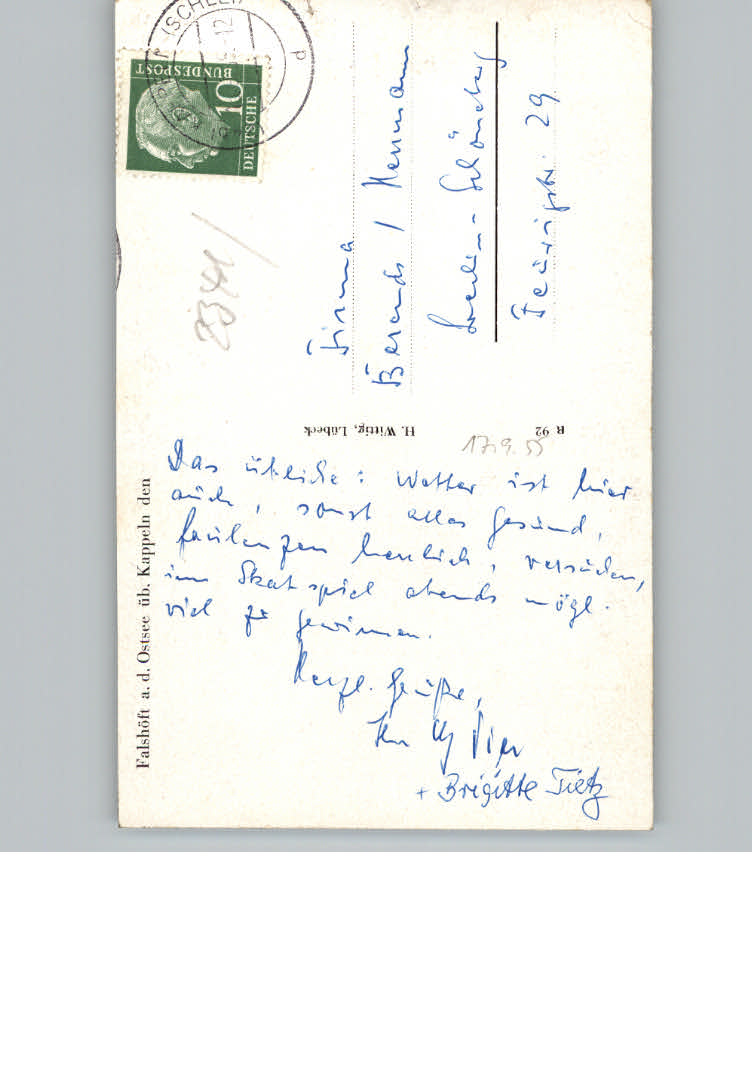 Falshöft a. d. Ostsee üb. Kappeln den
Das übliche: Wetter ist hier
auch, sonst alles gesund,
faulenzen herrlich, versuchen,
im Skatspiel abends mögl.
viel zu gewinnen.
Herzl. Grüße,
Ihr
+ Brigitte Tietz
H. Wittig, Lübeck
R 92
17.9.55
DEUTSCHE
BUNDESPOST
10
2341
Firma
Berends / Neumann
Berlin-Schöneberg
Feurigstr. 29